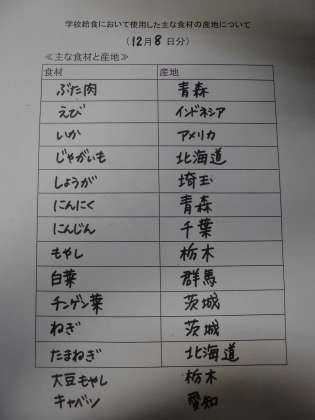 学校給食において使用した主な食材の産地について
（12月8日分）
≪主な食材と産地≫
食材 産地
ぶた肉 青森
えび インドネシア
いか アメリカ
じゃがいも 北海道
しょうが 埼玉
にんにく 青森
にんじん 千葉
もやし 栃木
白菜 群馬
チンゲン菜 茨城
ねぎ 茨城
たまねぎ 北海道
大豆もやし 栃木
キャベツ 愛知